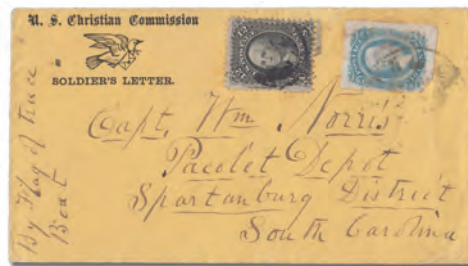 U. S. Christian Commission
SOLDIER'S LETTER.
By Flag of truce
Boat
Capt. Wm. Norris
Pacolet Depot
Spartanburg District
South Carolina